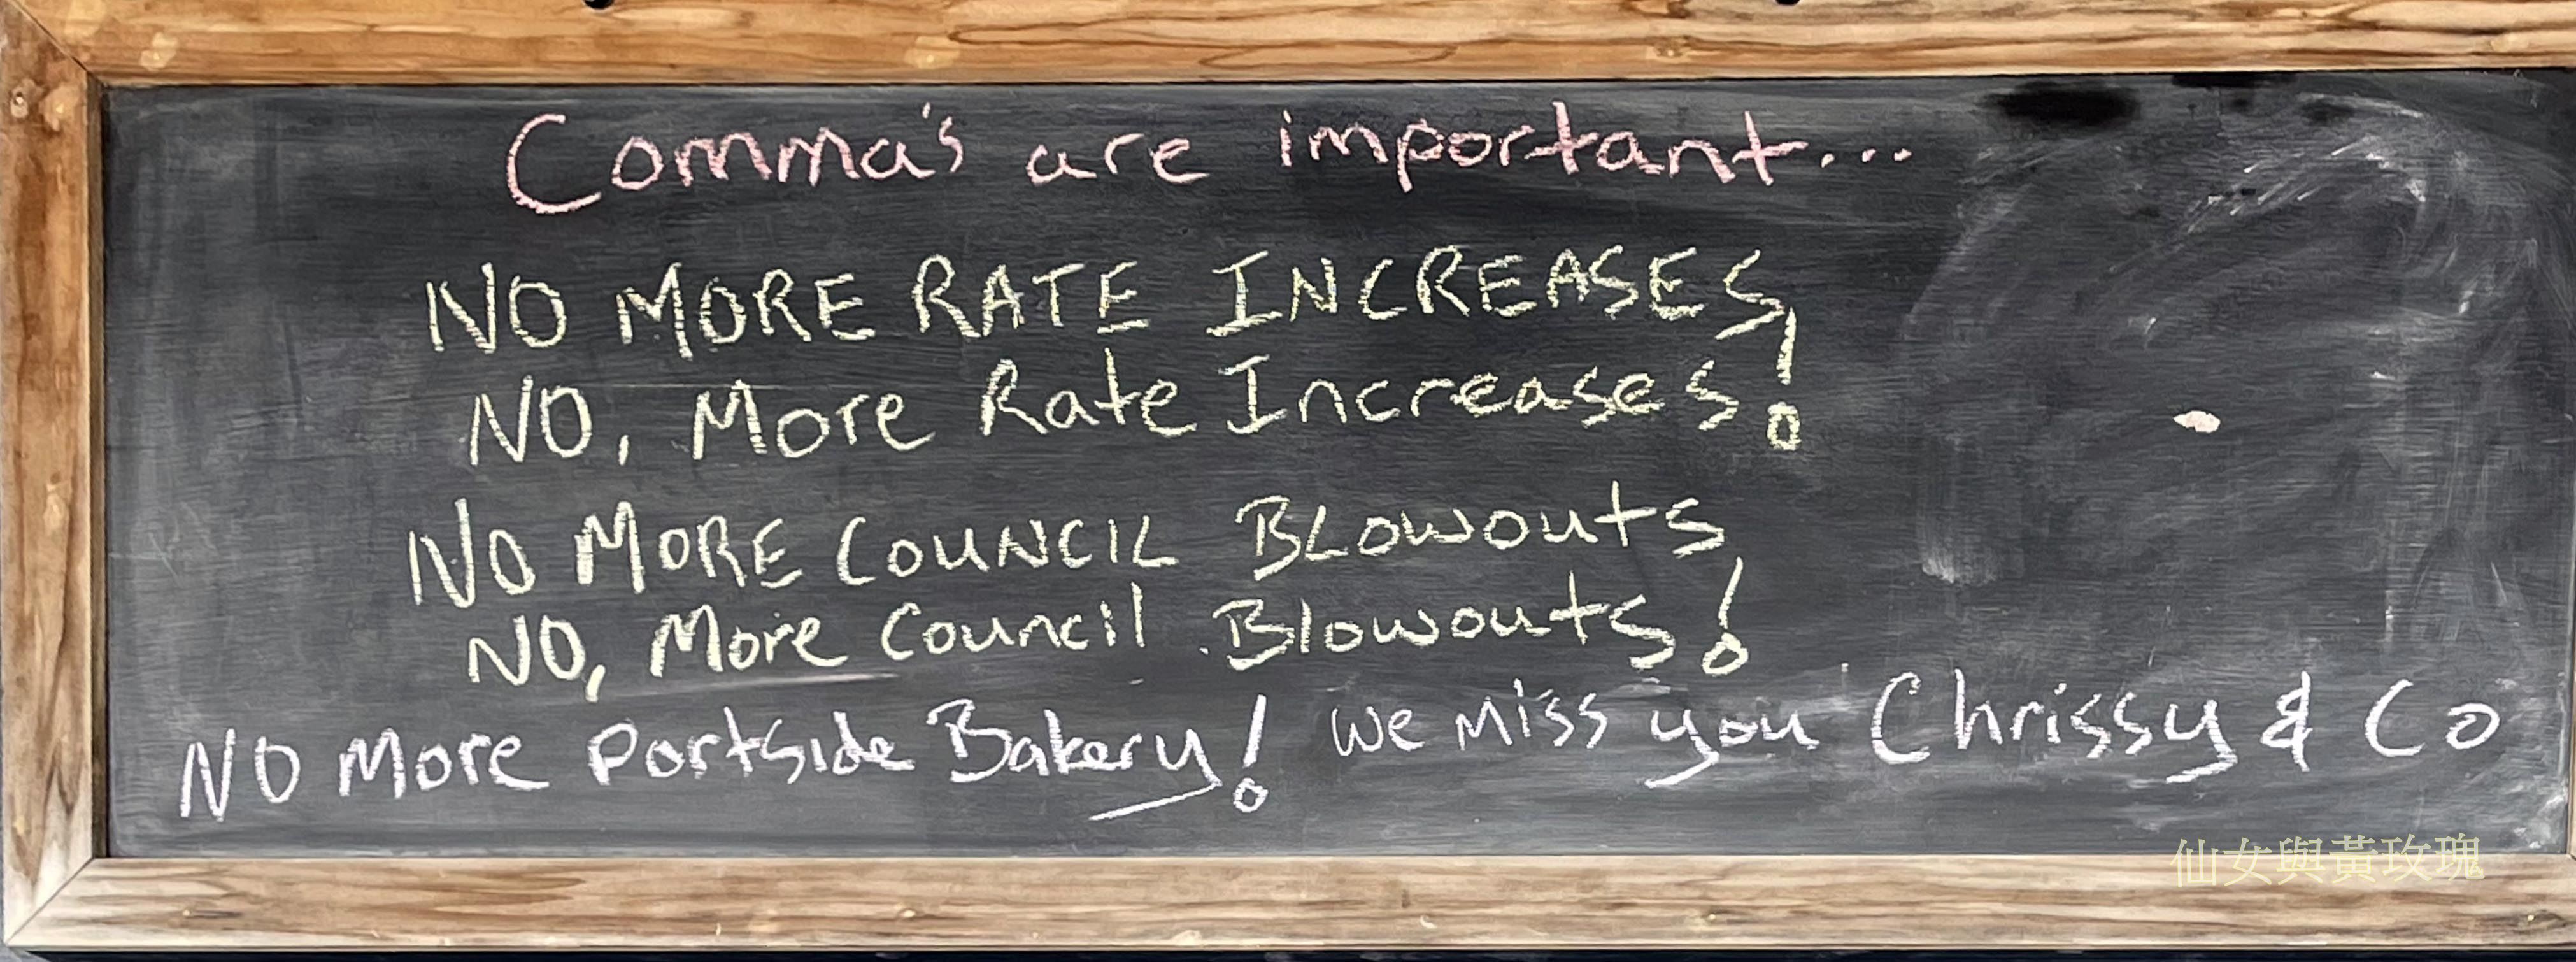 Comma's are important...
NO MORE RATE INCREASES!
NO, More Rate Increases!
NO MORE COUNCIL BLOWOUTS
NO, More Council Blowouts!
NO More Portside Bakery! We Miss you Chrissy & Co
仙女與黃玫瑰